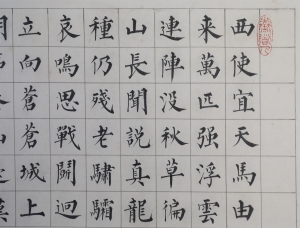 西使宜天馬由
来萬匹强浮雲
連陣没秋草徧
山長聞説真龍
種仍殘老驌驦
哀鳴思戰鬭迥
立向蒼蒼城上